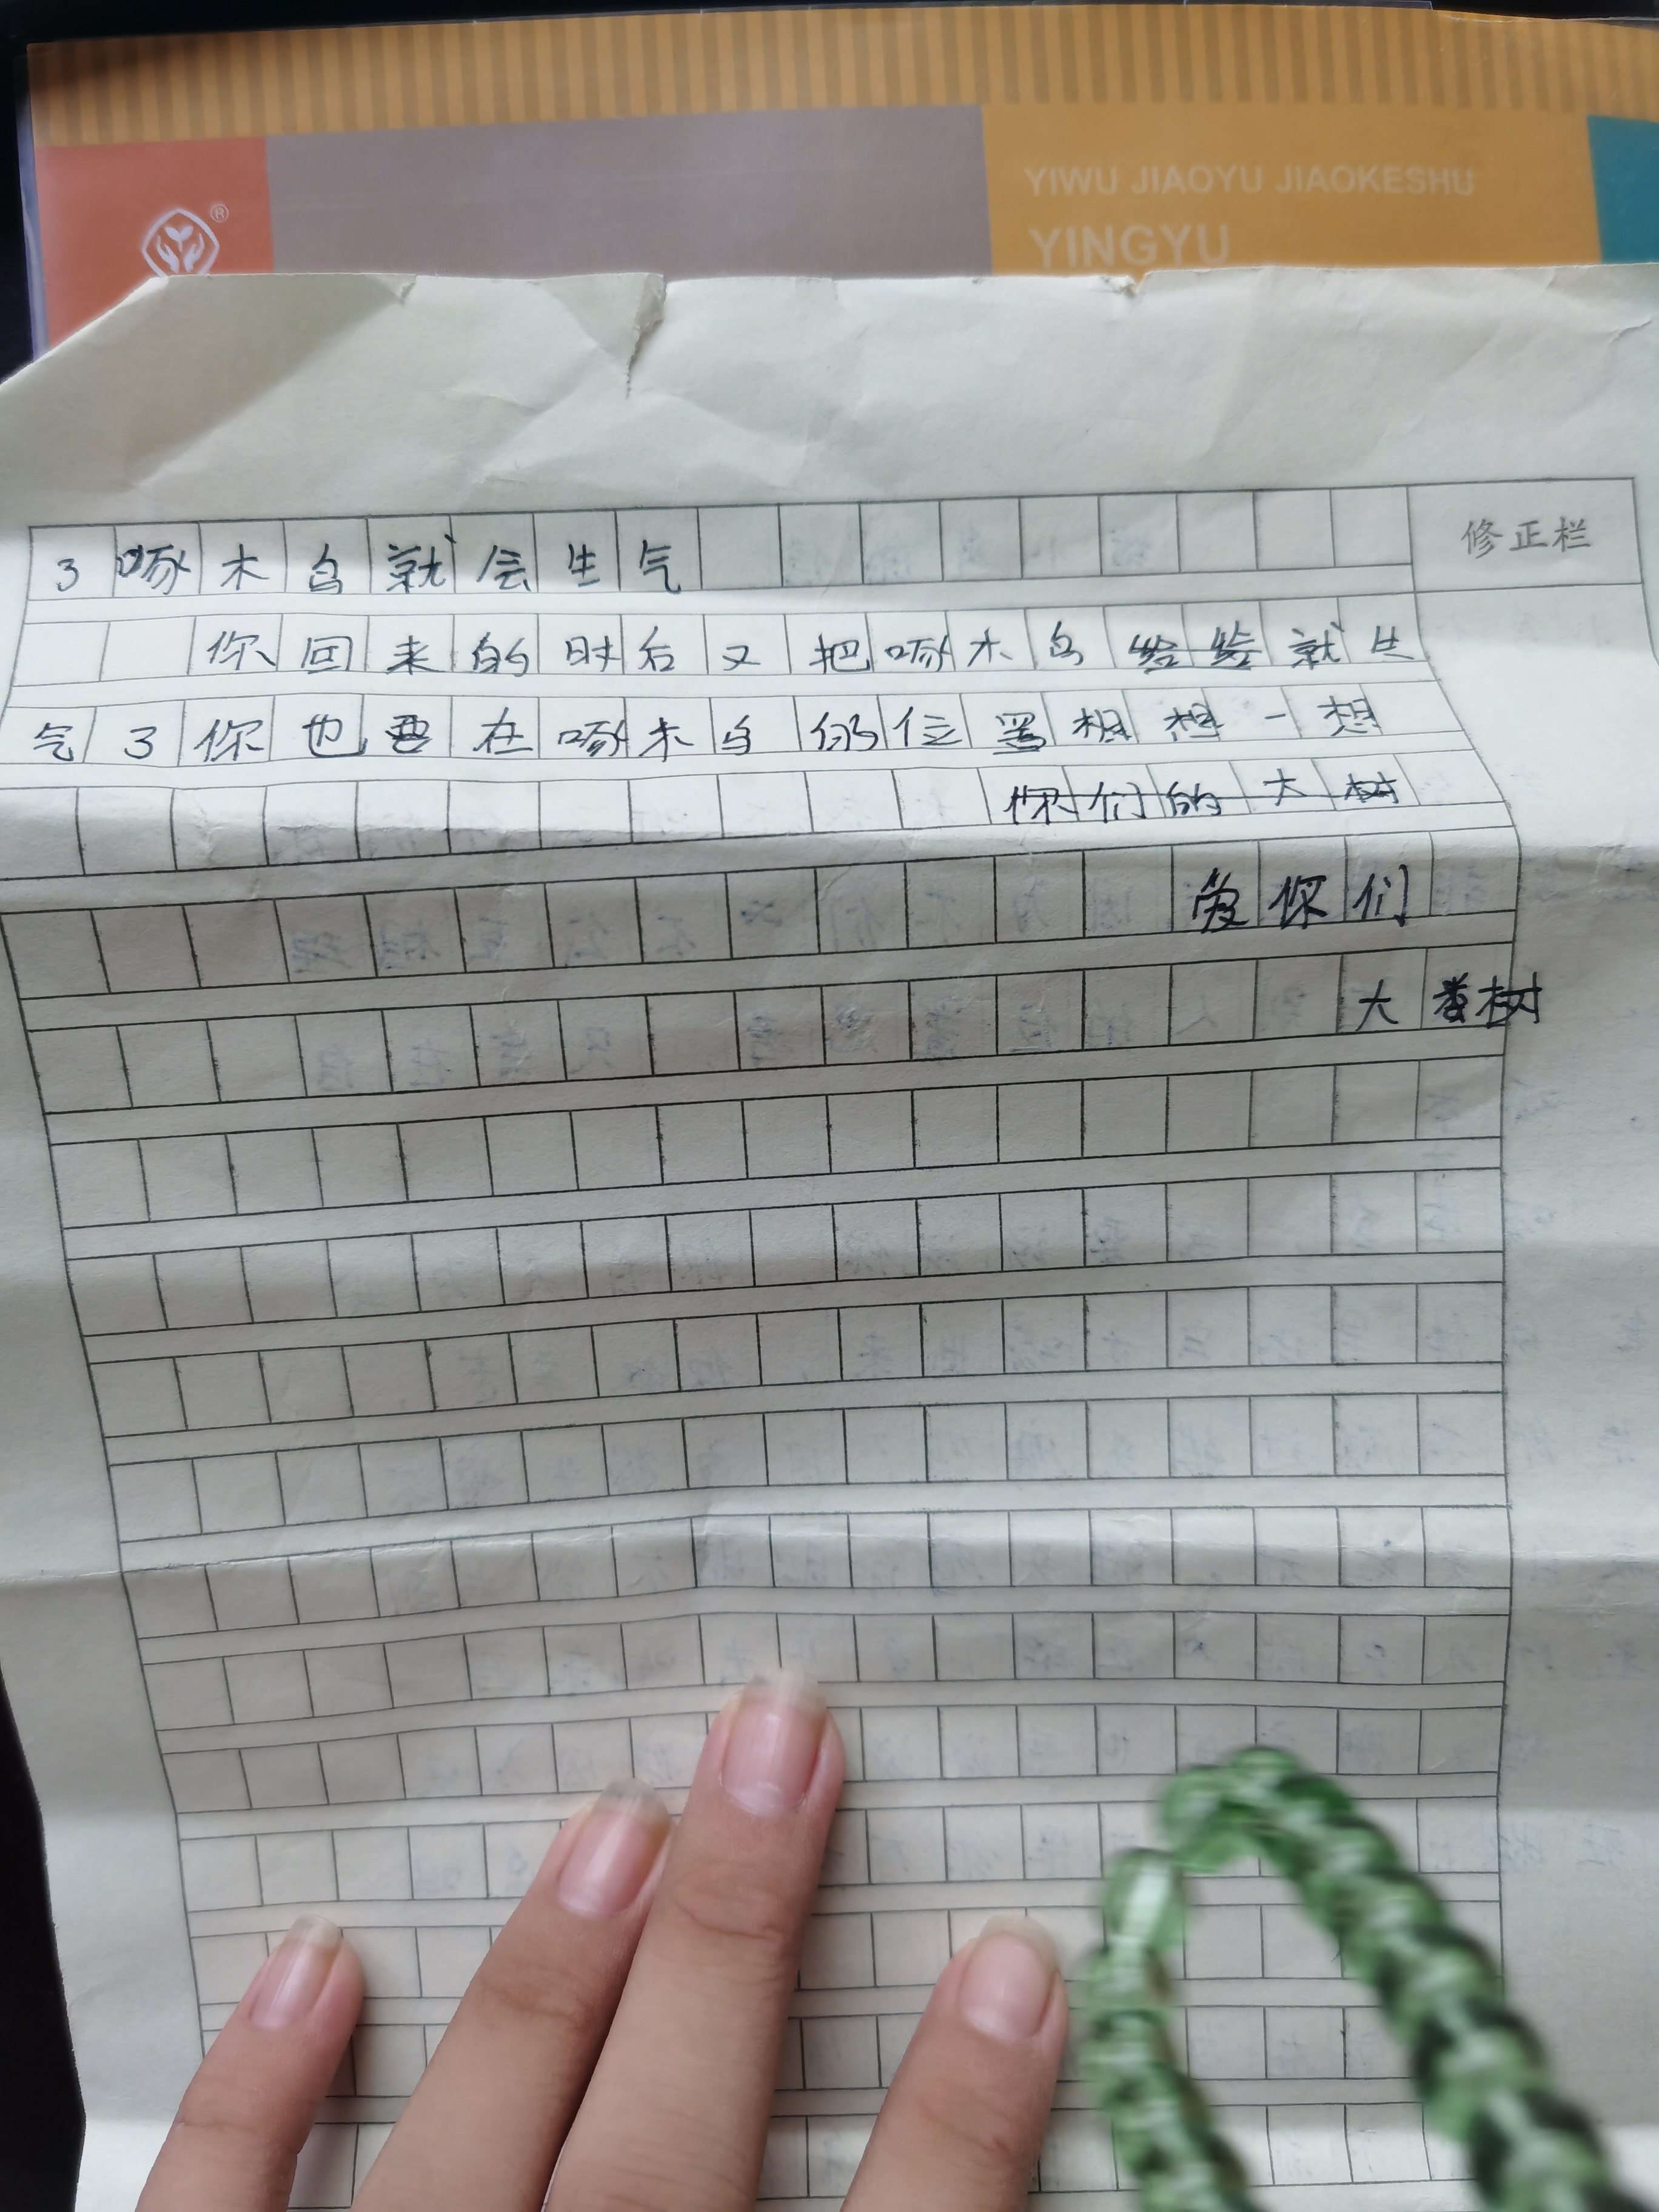 YIWU JIAOYU JIAOKESHU
YINGYU
®
修正栏
了啄木鸟就会生气
你回来的时后又把啄木鸟给给就生
气了你也要在啄木鸟的位置想想一想
你们的大树
爱你们
大娄树